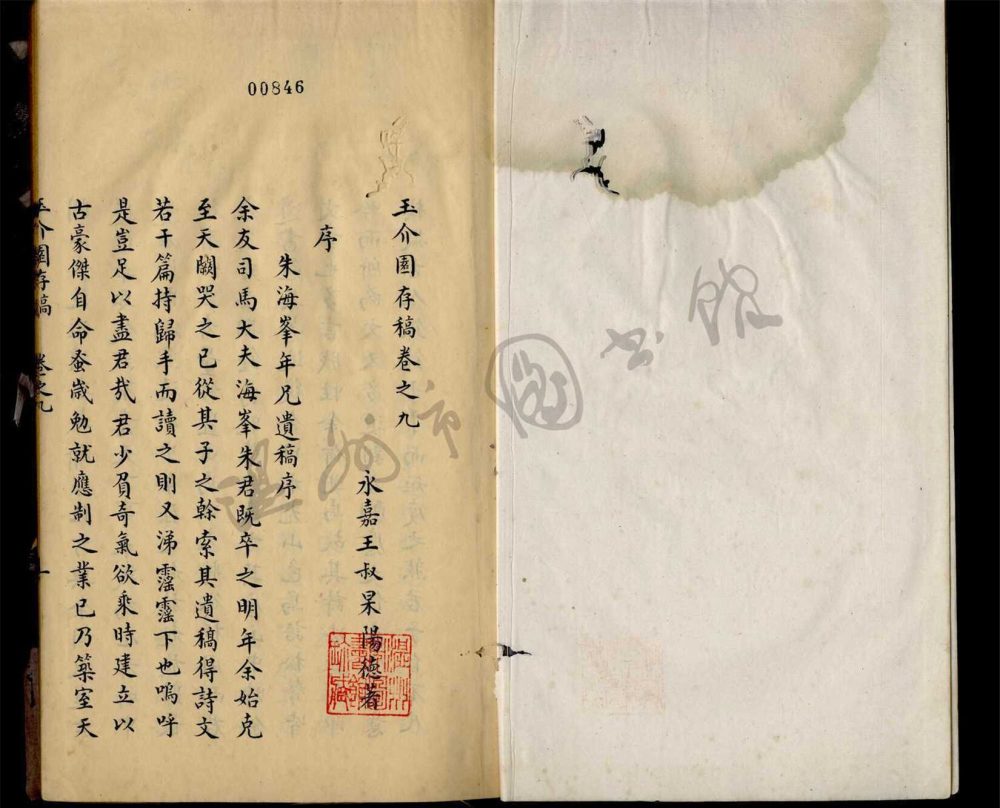 00846
玉介園存稿卷之九
永嘉王叔杲陽德著
序
朱海峯年兄遺稿序
余友司馬大夫海峯朱君既卒之明年余始克
至天闕哭之已從其子之榦索其遺稿得詩文
若干篇持歸手而讀之則又涕霪霪下也嗚呼
是豈足以盡君㦲君少負奇氣欲乘時建立以
古豪傑自命蚤歲勉就應制之業已乃築室天
玉介園存稿 卷之九 一
溫州市圖書館